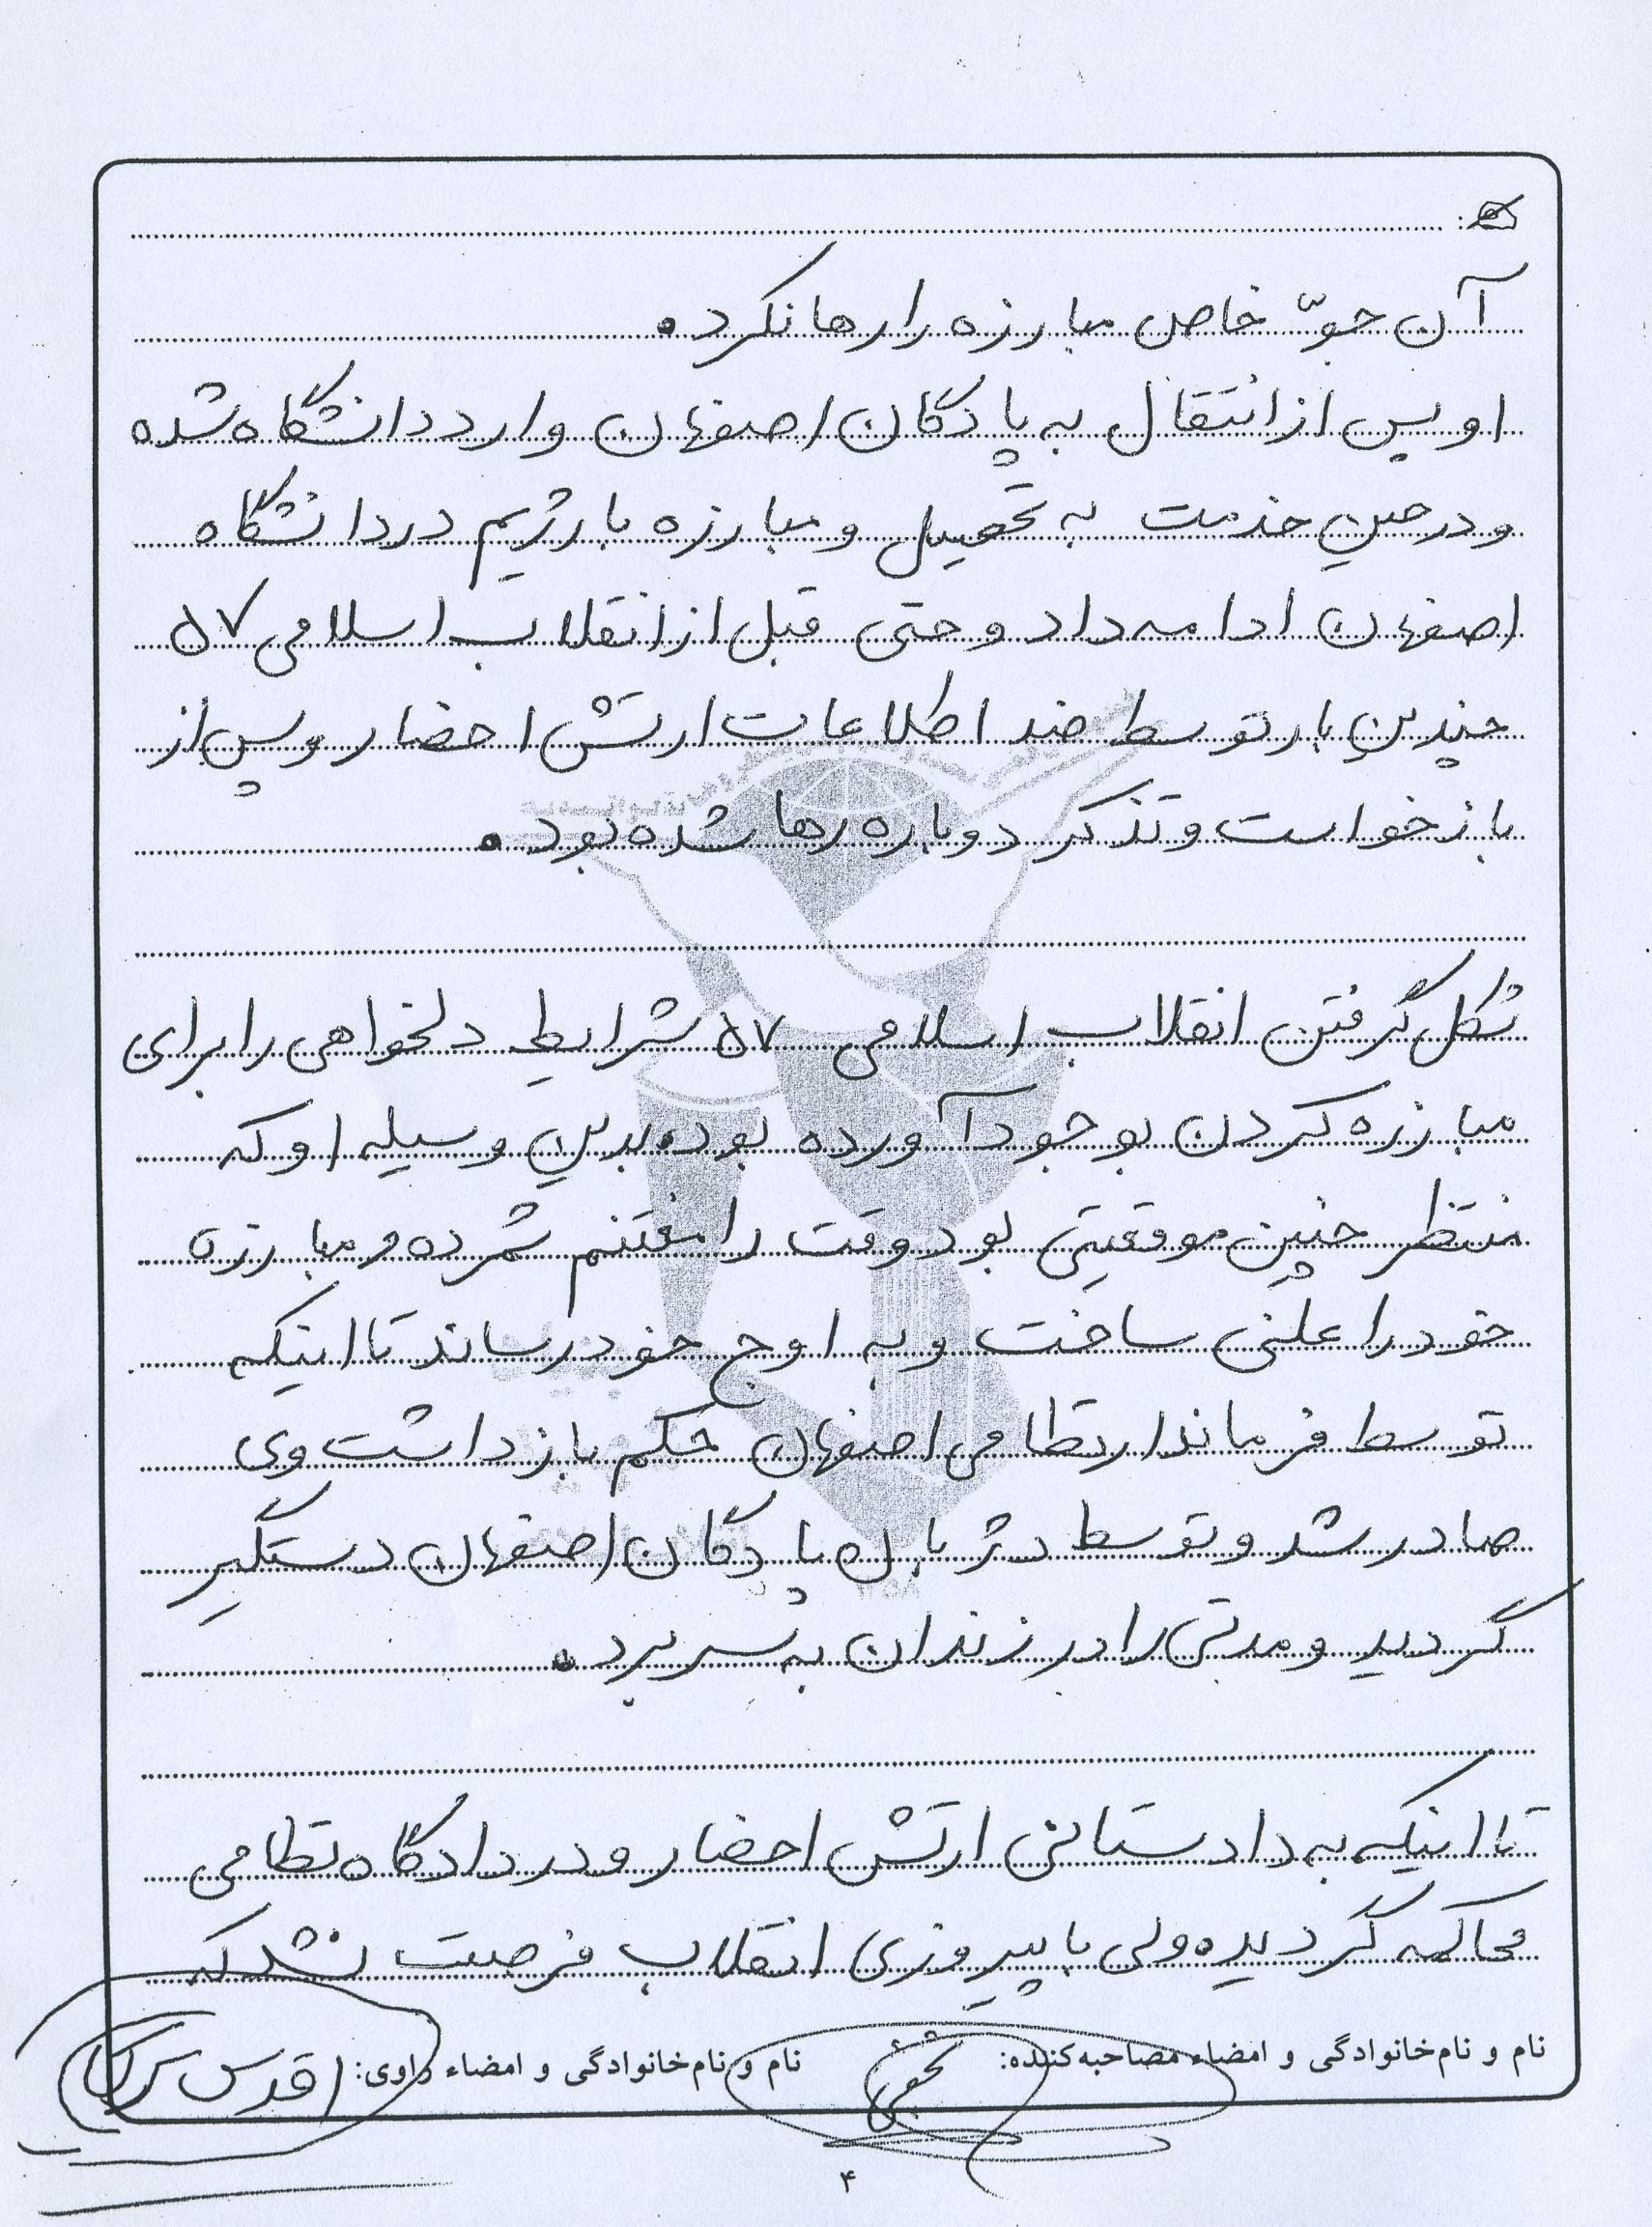 آن جوّ خاص مبارزه را رها نکرد.
او پس از انتقال به پادگان اصفهان وارد دانشگاه شده
و در حین خدمت به تحصیل و مبارزه با رژیم در دانشگاه
اصفهان ادامه داد و حتی قبل از انقلاب اسلامی ۵۷
چندین بار توسط ضد اطلاعات ارتش احضار و پس از
بازخواست و تذکر دوباره رها شده بود.
شکل گرفتن انقلاب اسلامی ۵۷ شرایط دلخواهی را برای
مبارزه کردن بوجود آورده بود. بدین وسیله او که
منتظر چنین موقعیتی بود وقت را مغتنم شمرده و مبارزه
خود را علنی ساخت و به اوج خود رساند تا اینکه
توسط فرماندار نظامی اصفهان حکم بازداشت وی
صادر شد و توسط دژبان پادگان اصفهان دستگیر
گردید و مدتی را در زندان به سر برد.
تا اینکه به دادستانی ارتش احضار و در دادگاه نظامی
محاکمه گردیده ولی با پیروزی انقلاب فرصت نشد که
نام و نام‌خانوادگی و امضاء مصاحبه‌کننده:
نام و نام‌خانوادگی و امضاء راوی: اقدس
۴